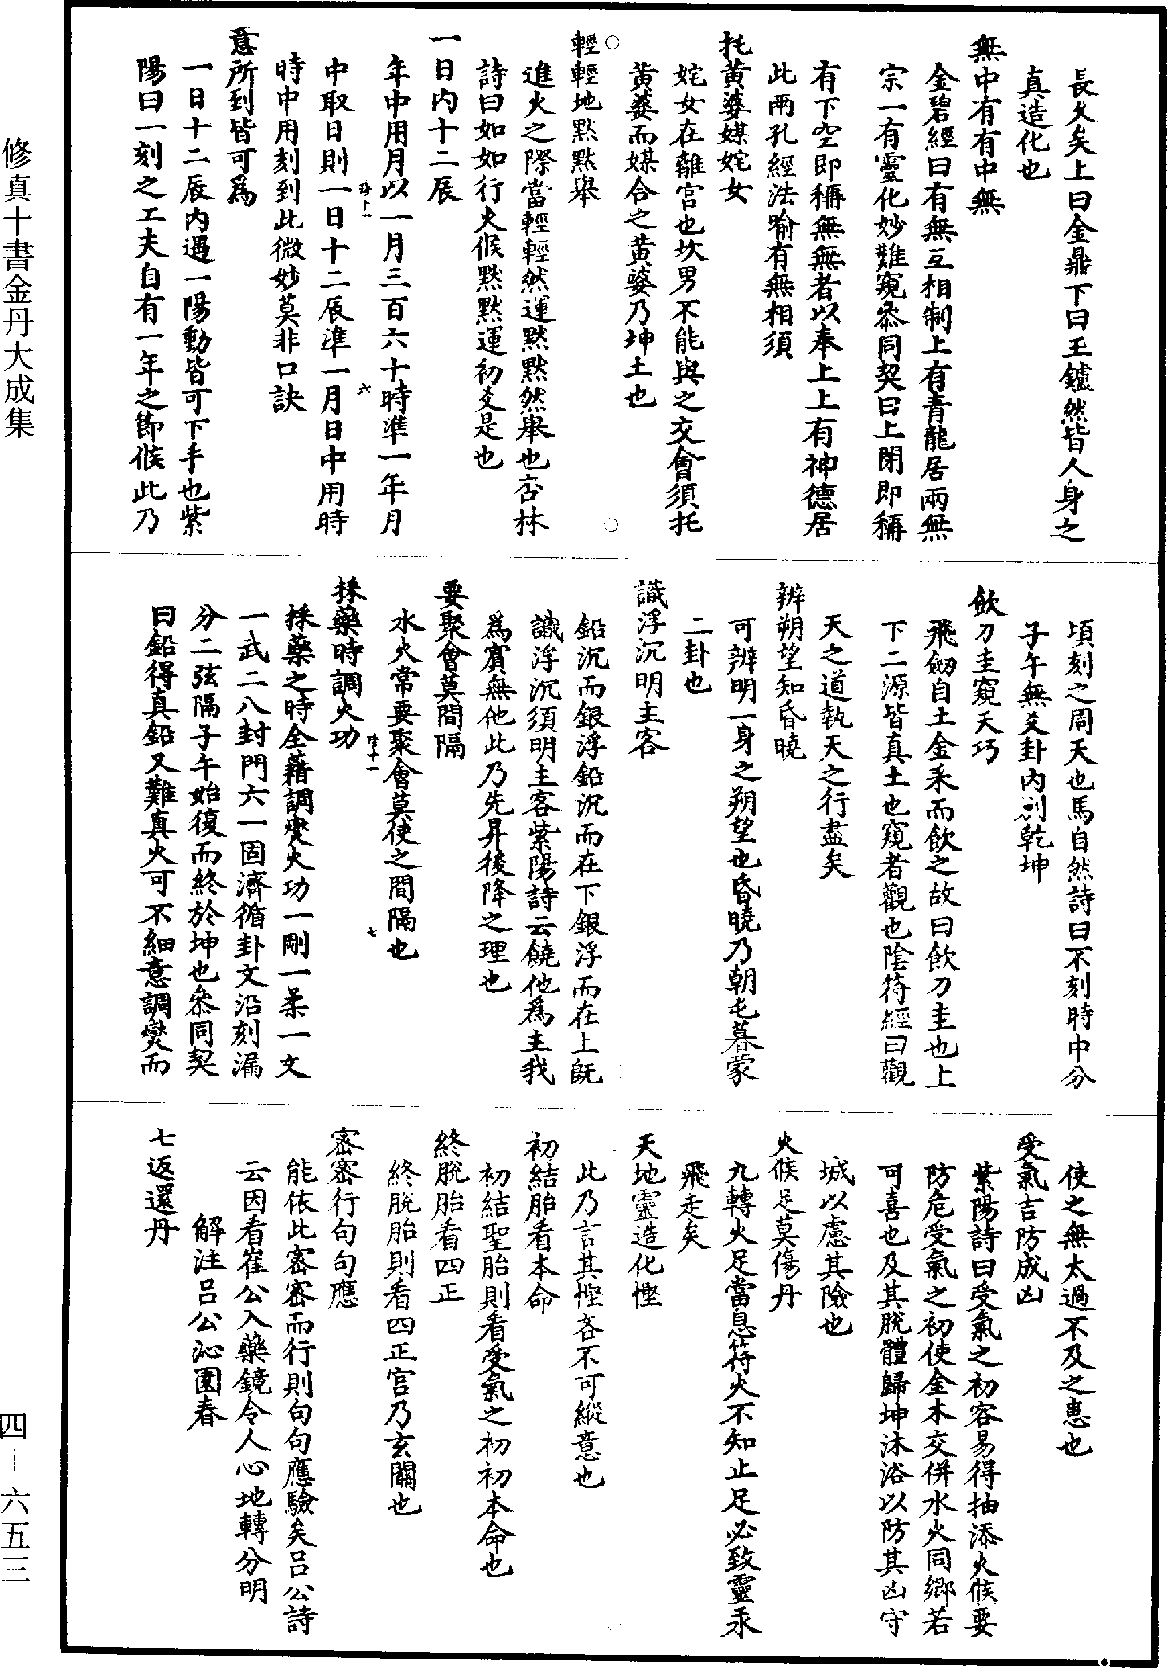 長久矣上曰金鼎下曰玉鑪然皆人身之
真造化也
無中有有中無
金碧經曰有無互相制上有青龍居兩無
宗一有靈化妙難窺叅同契曰上閉即稱
有下空即稱無無者以奉上上有神德居
此兩孔經法喻有無相須
托黃婆媒姹女
姹女在離宮也坎男不能與之交會須托
黃婆而媒合之黃婆乃坤土也
輕輕地黙黙舉
進火之際當輕輕然運黙黙然舉也杏林
詩曰如如行火候黙黙運初爻是也
一日內十二辰
年中用月以一月三百六十時準一年月
中取日則一日十二辰準一月日中用時
時中用刻到此微妙莫非口訣
意所到皆可為
一日十二辰內遇一陽動皆可下手也紫
陽曰一刻之工夫自有一年之節候此乃
頃刻之周天也馬自然詩曰不刻時中分
子午無爻卦內別乾坤
飲刀圭窺天巧
飛劒自土金汞而飲之故曰飲刀圭也上
下二源皆真土也窺者觀也陰符經曰觀
天之道執天之行盡矣
辨朔望知昏曉
可辨明一身之朔望也昏曉乃朝屯暮蒙
二卦也
識浮沉明主客
鉛沉而銀浮鉛沉而在下銀浮而在上既
識浮沉須明主客紫陽詩云饒他為主我
為賓無他此乃先昇後降之理也
要聚會莫間隔
水火常要聚會莫使之間隔也
採藥時調火功
採藥之時全藉調燮火功一剛一柔一文
一武二八封門六一固濟循卦文沿刻漏
分二弦隔子午始復而終於坤也叅同契
曰鉛得真鉛又難真火可不細意調燮而
使之無太過不及之患也
受氣吉防成凶
紫陽詩曰受氣之初容易得抽添火候要
防危受氣之初使金木交併水火同鄉若
可喜也及其脫體歸坤沐浴以防其凶守
城以慮其險也
火候足莫傷丹
九轉火足當息符火不知止足必致靈汞
飛走矣
天地靈造化慳
此乃言其慳吝不可縱意也
初結胎看本命
初結聖胎則看受氣之初初本命也
終脫胎看四正
終脫胎則看四正宮乃玄關也
密密行句句應
能依此密密而行則句句應驗矣呂公詩
云因看崔公入藥鏡令人心地轉分明
解注呂公沁園春
七返還丹
修真十書金丹大成集
四－六五三